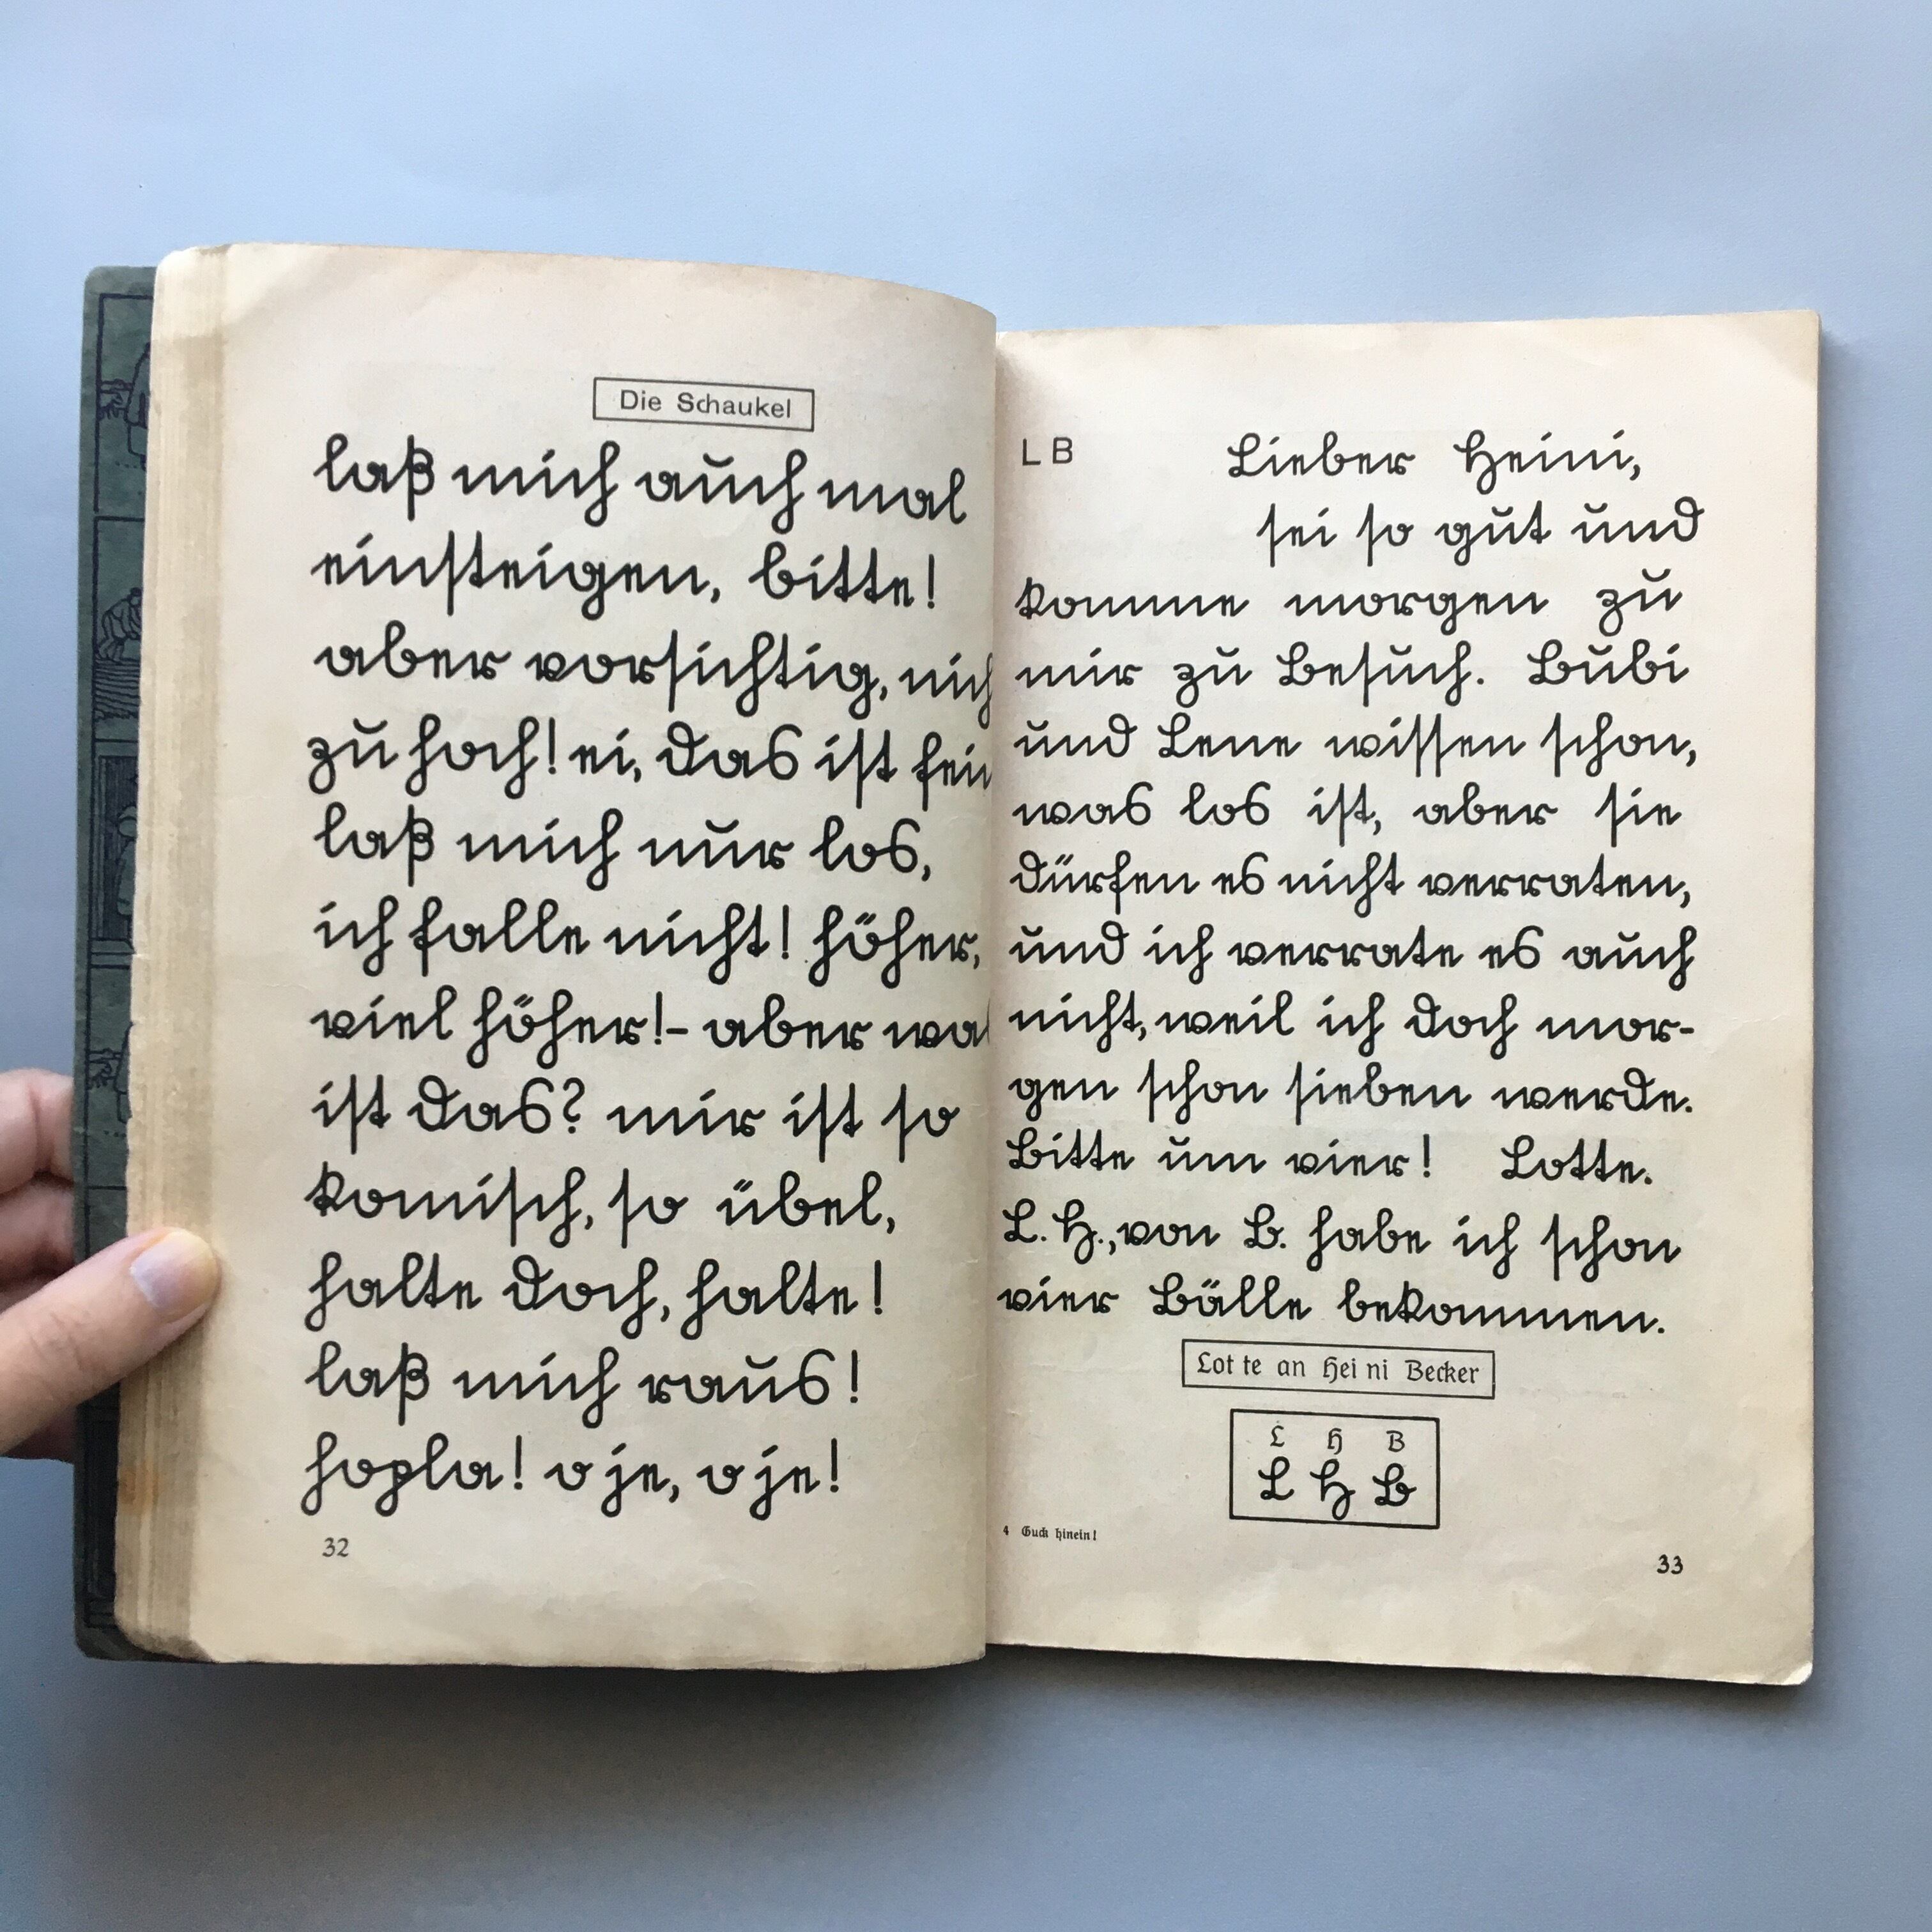 Die Schaukel
laß mich auch mal
einsteigen, bitte!
aber vorsichtig,
zu hoch! ei, das ist
laß mich nur los,
ich falle nicht! höher,
viel höher!- aber
ist das? mir ist so
komisch, so übel,
halte doch, halte!
laß mich raus!
hopla! o je, o je!
32
L B
Lieber Heini,
sei so gut und
komme morgen zu
mir zu Besuch. Bubi
und Lene wissen schon,
was los ist, aber sie
dürfen es nicht verraten,
und ich verrate es auch
nicht, weil ich doch mor-
gen schon sieben werde.
Bitte um vier! Lotte.
L. H., von B. habe ich schon
vier Bälle bekommen.
Lot te an Hei ni Becker
L H B
L H B
4 Guck hinein!
33